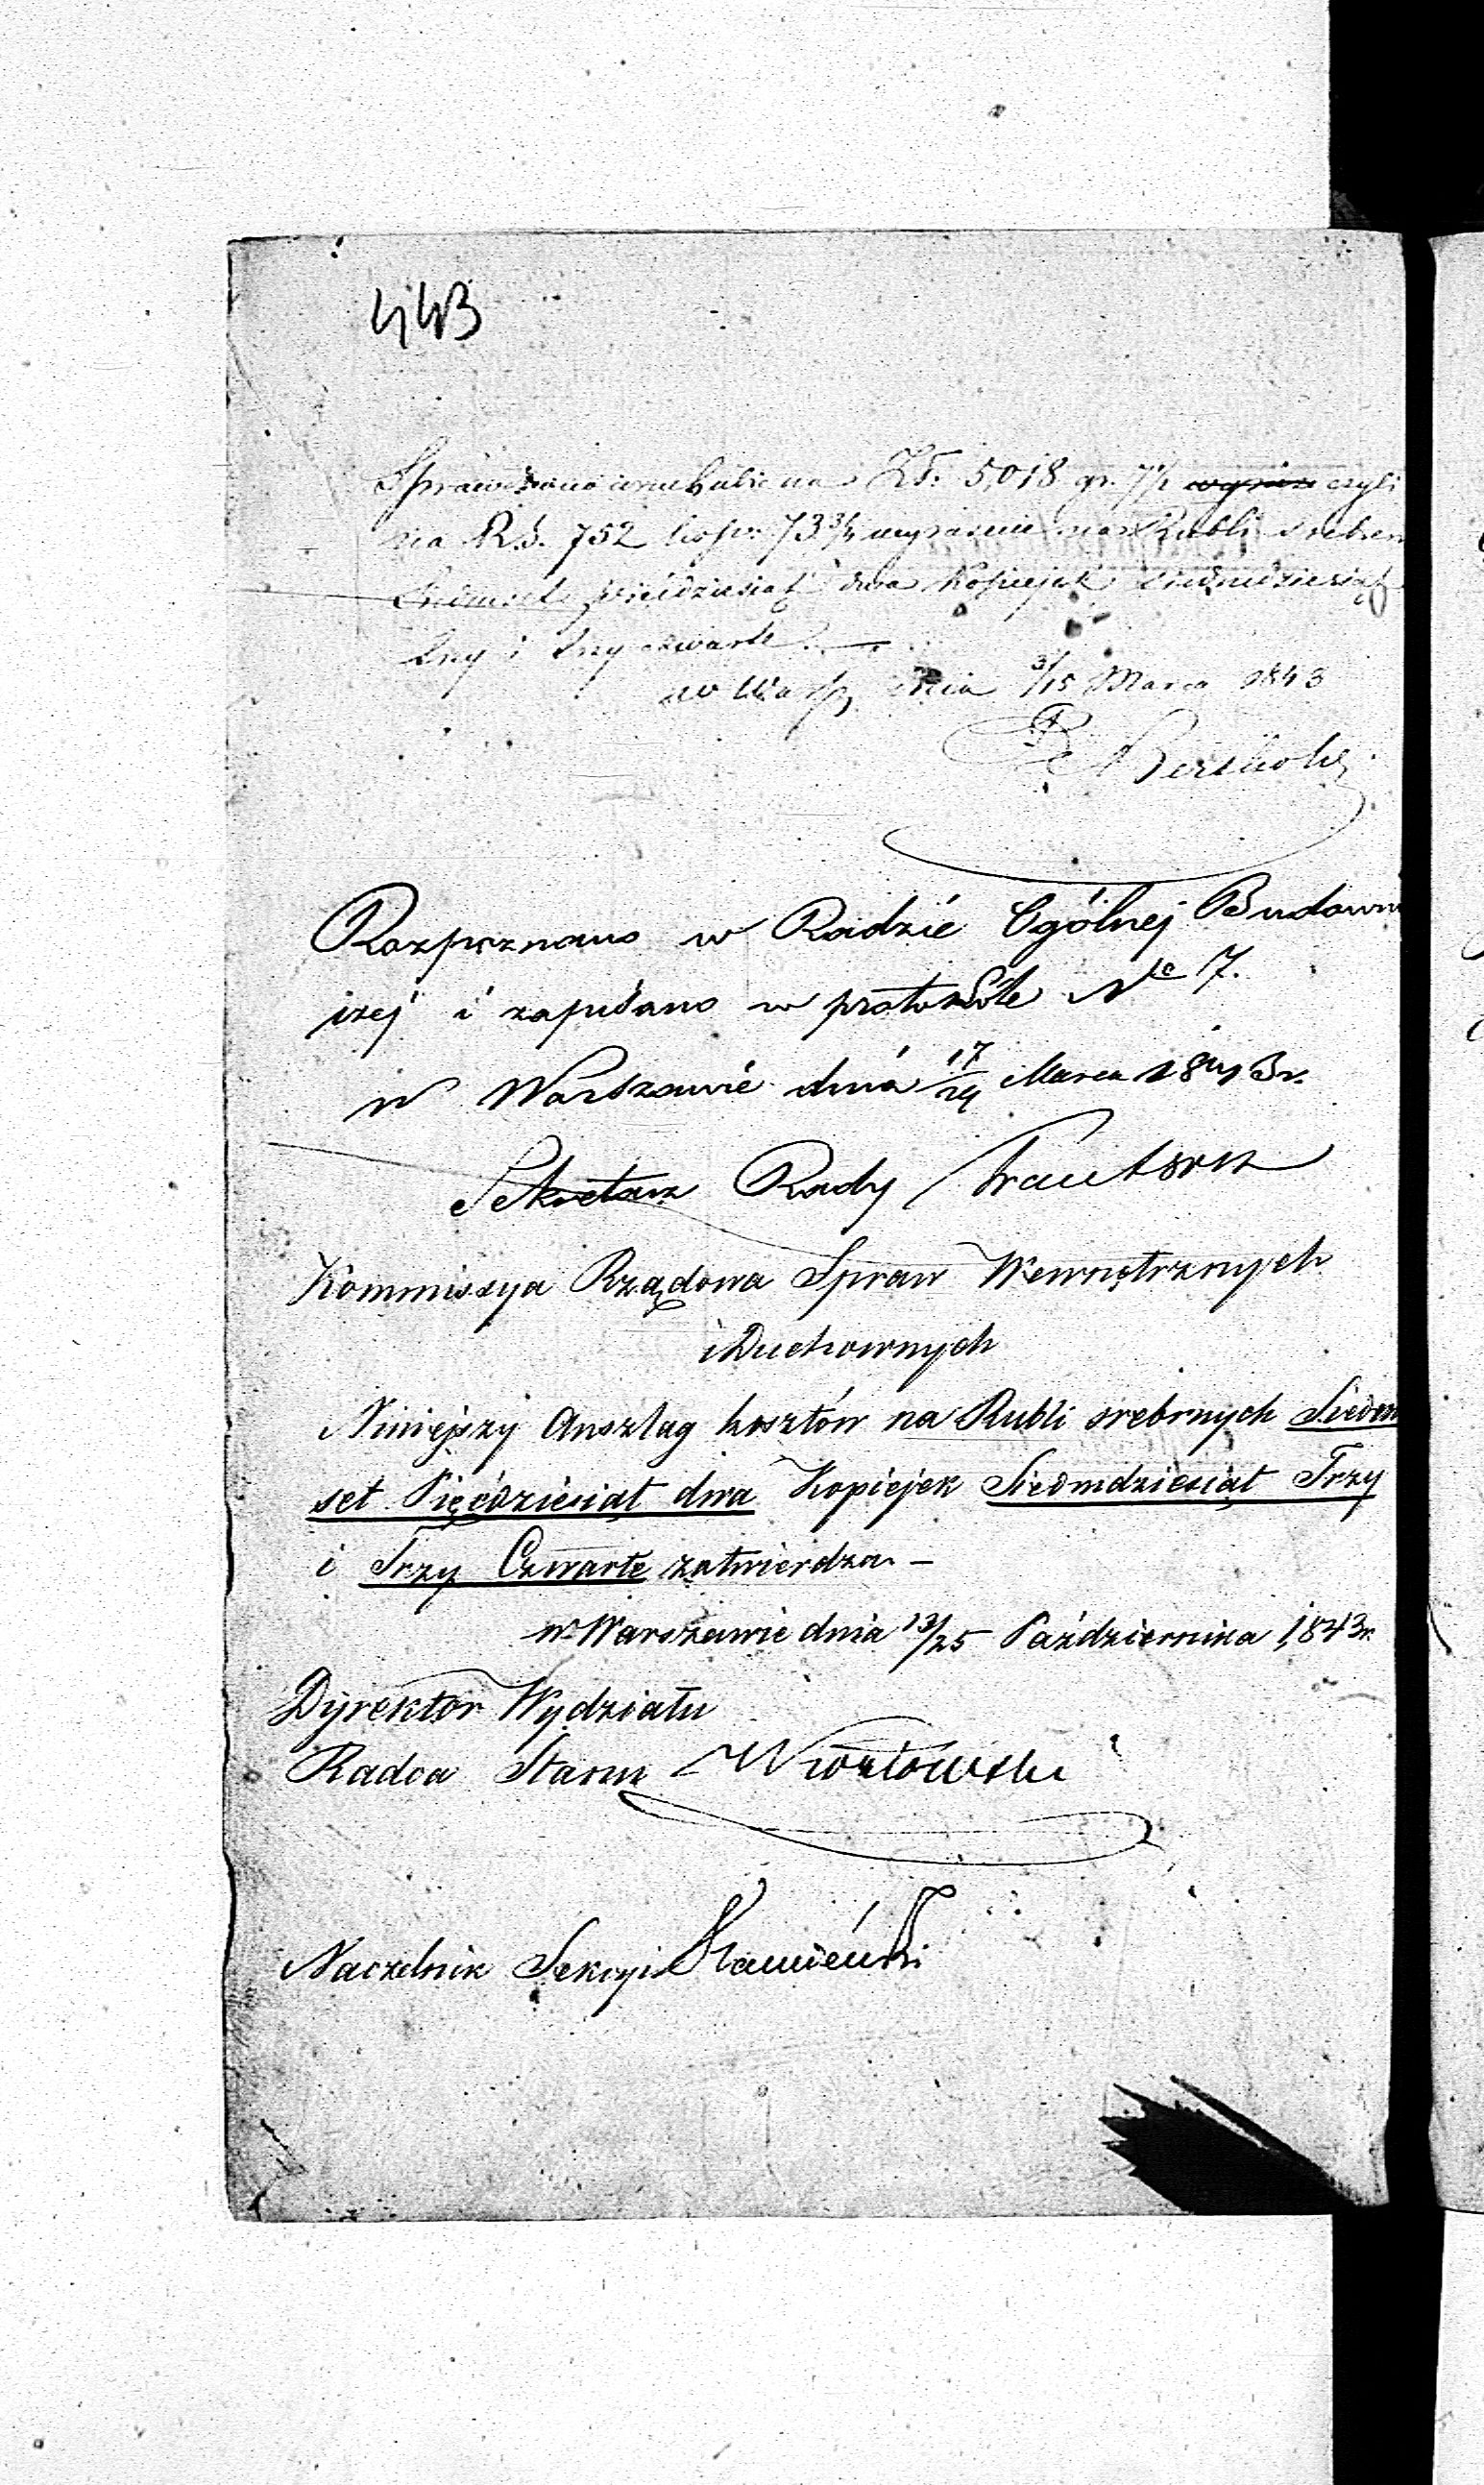 443
Sprawdzono w rachubie na Zł: 5,018 gr. 7½ wyraź czyli
na R.S. 752 kop: 73¾ wyraźnie na Rubli srebrn
Siedmset pięćdziesiąt dwa kopiejek siedmdziesiąt
trzy i trzy czwarte.
w Warsz dnia 3/15 Marca 1843
Rozpoznano w Radzie Ogólnej Budowni
czej i zapisano w protokóle No 7.
w Warszawie dnia Marca 1843 r.
Sekretarz Rady
Kommissya Rządowa Spraw Wewnętrznych
i Duchownych
Niniejszy Anszlag kosztów na Rubli srebrnych Siedm
set Pięćdziesiąt dwa Kopiejek Siedmdziesiąt Trzy
i Trzy Czwarte zatwierdza. –
w Warszawie dnia 13/25 Października 1843 r.
Dyrektor Wydziału
Radca Stanu
Naczelnik Sekcyi Kamieński